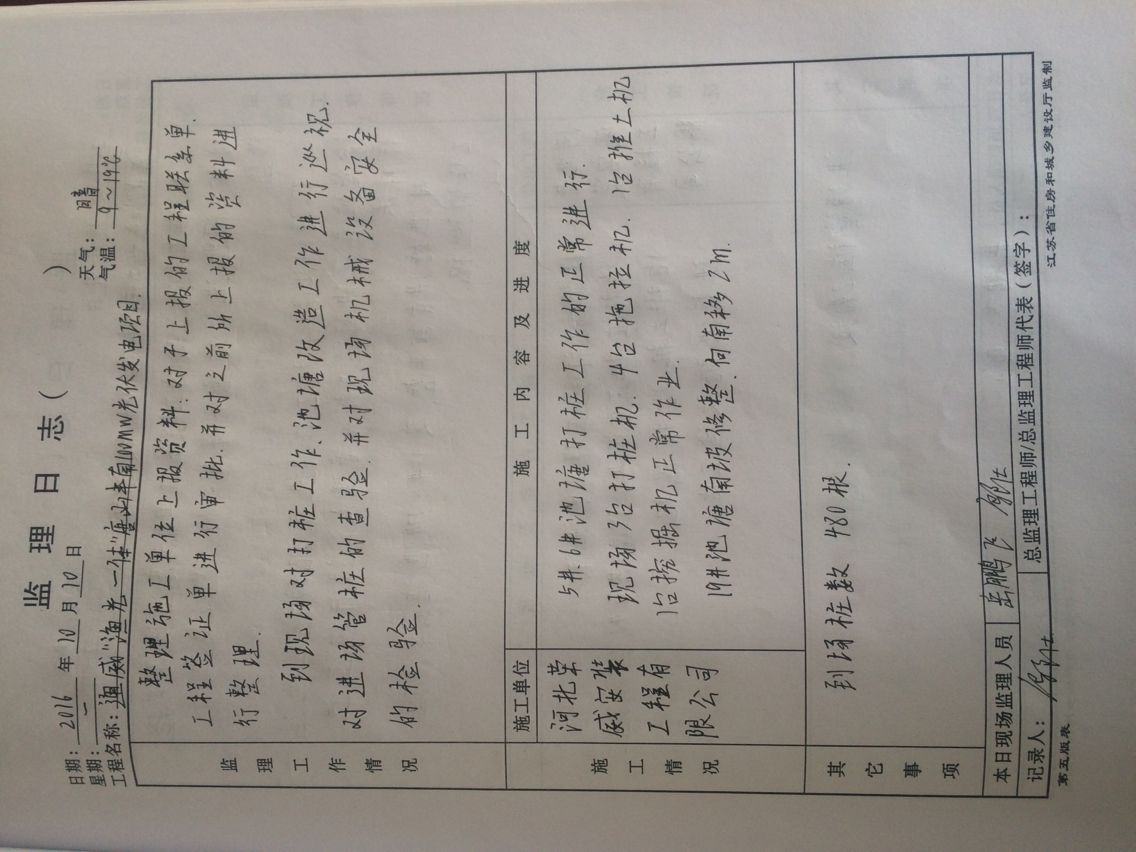 监 理 日 志（ ）
日期： 2016 年 10 月 10 日
天气： 阴
星期： 一
气温： 9～19℃
工程名称： 通威"渔光一体"唐山丰南100MW光伏发电项目.
监理工作情况
整理施工单位上报资料：对于上报的工程联系单.
工程签证单进行审批.并对之前所上报的资料进
行整理.
到现场对打桩工作、池塘改造工作进行巡视.
对进场管桩的查验.并对现场机械设备安全
的检验.
施工情况
施工单位
施 工 内 容 及 进 度
河北荣
威安装
工程有
限公司
5#.6#池塘打桩工作的正常进行.
现场3台打桩机.4台拖拉机.1台推土机
1台挖掘机正常作业.
19#池塘南坡修整.向南移2m.
其它事项
到场桩数 480根.
本日现场监理人员
岳鹏飞
记录人：
总监理工程师/总监理工程师代表（签字）：
第五版表
江苏省住房和城乡建设厅监制